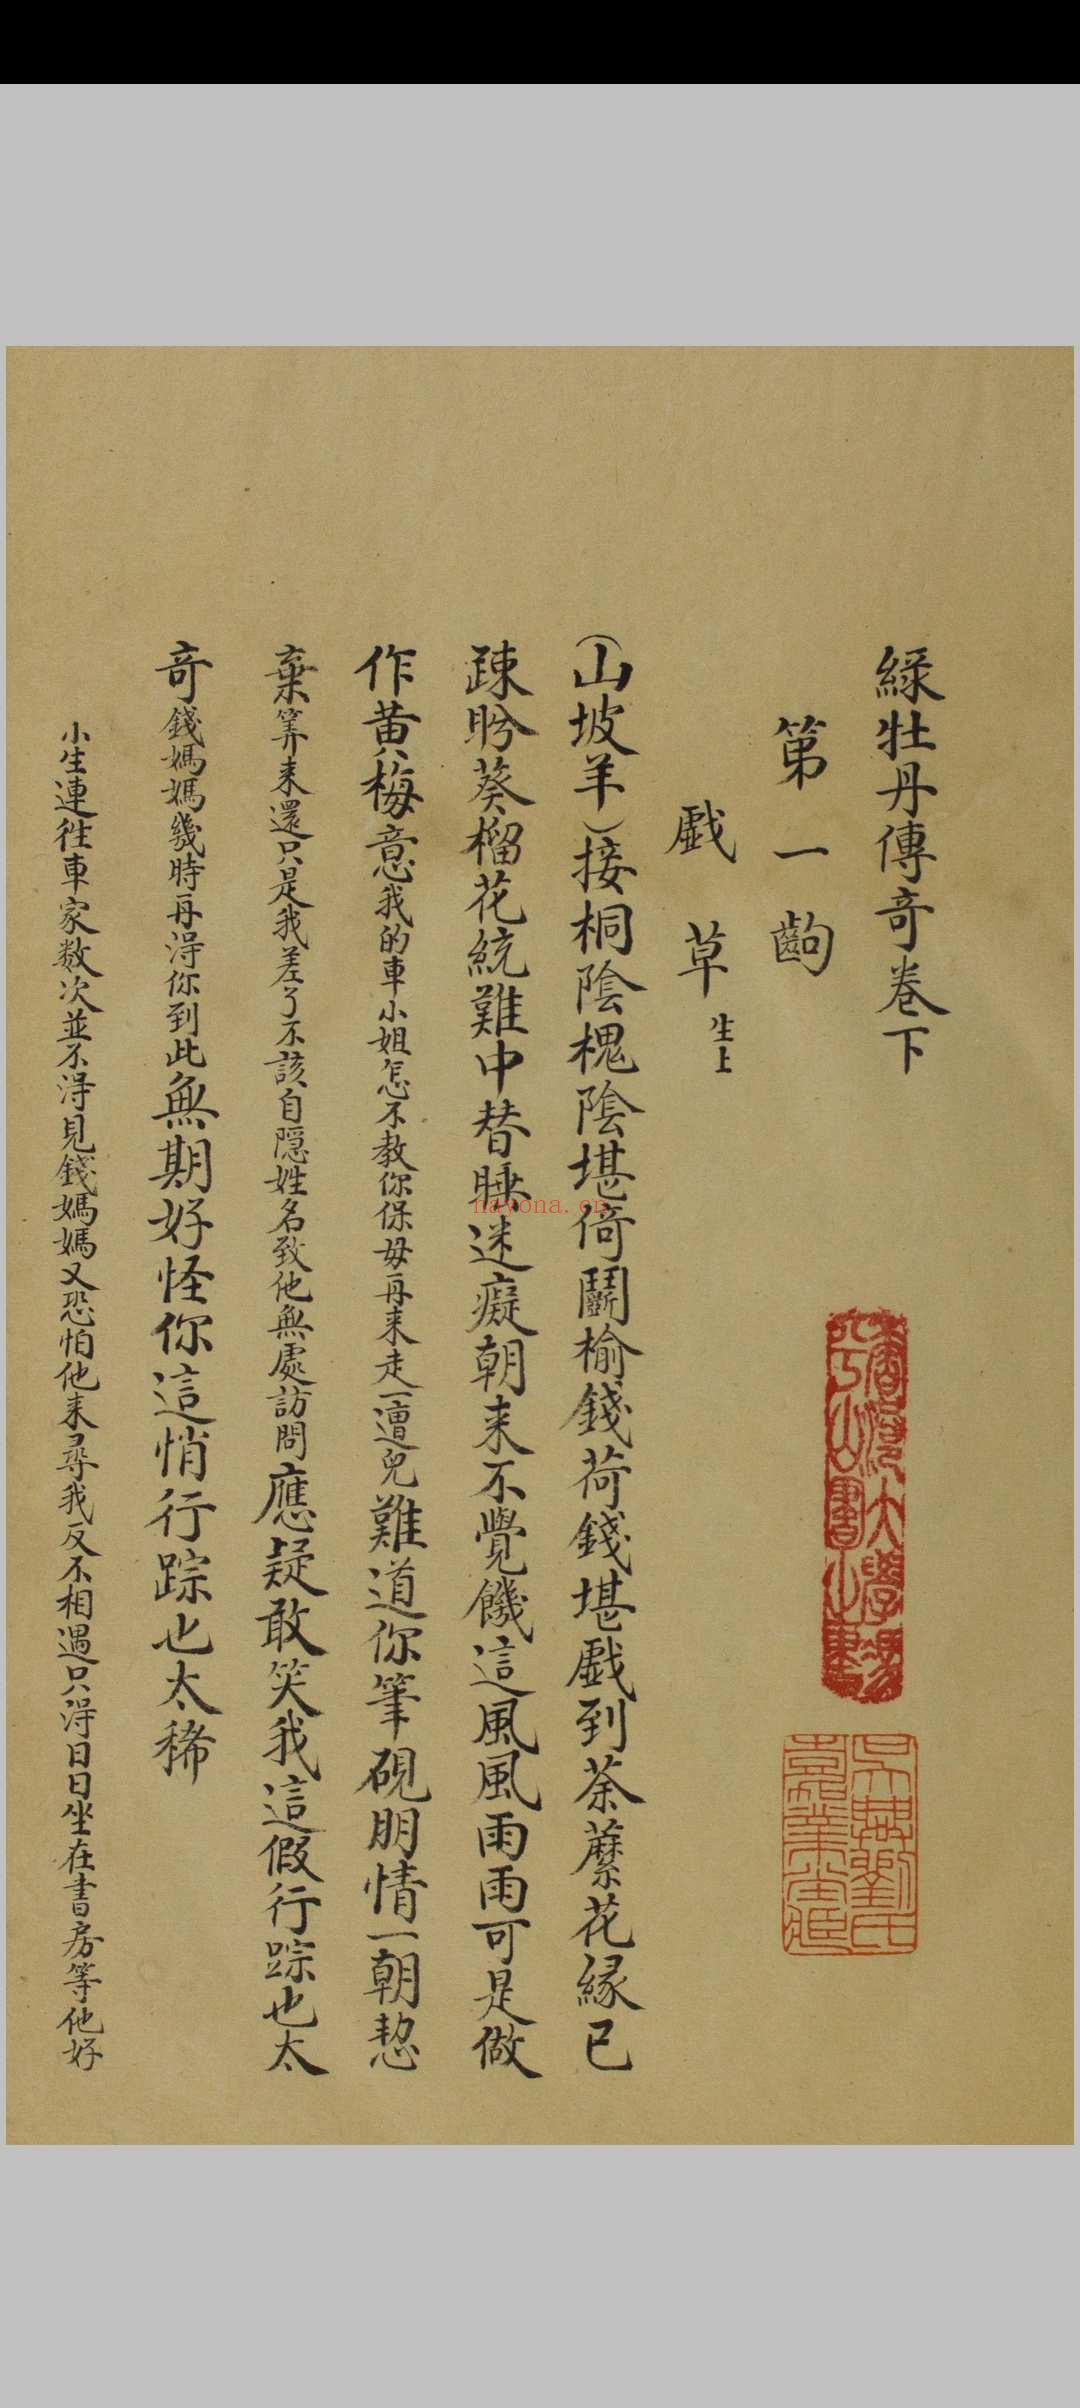 緑牡丹傳竒巻下
第一齣
戯草生上
(山坡羊)接桐陰槐陰堪倚鬬榆錢荷錢堪戯到荼蘼花緣已
踈盼葵榴花統難中替睡迷癡朝来不覺饑這風風雨雨可是做
作黄梅意我的車小姐怎不教你保母再来走一遭兒難道你筆硯朋情一朝愸
棄筭来還只是我差了不該自隠姓名致他無處訪問應疑敢笑我這假行踪也太
竒錢媽媽幾時再淂你到此無期好怪你這悄行踪也太稀
小生連徃車家数次並不淂見錢媽媽又恐怕他来尋我反不相遇只淂日日坐在書房等他好
吳興劉氏
嘉業堂藏
nayona.cn